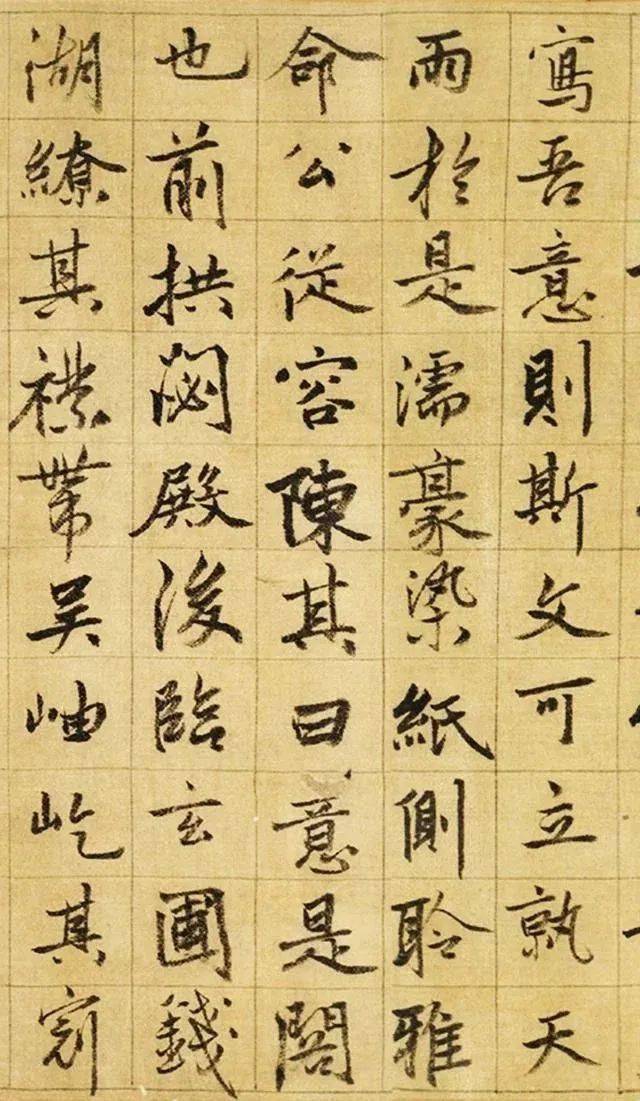 寫吾意則斯文可立就天
雨於是濡豪染紙側聆雅
命公從容陳其曰意是閣
也前拱閟殿後臨玄圃錢
湖繚其襟帶吳岫屹其